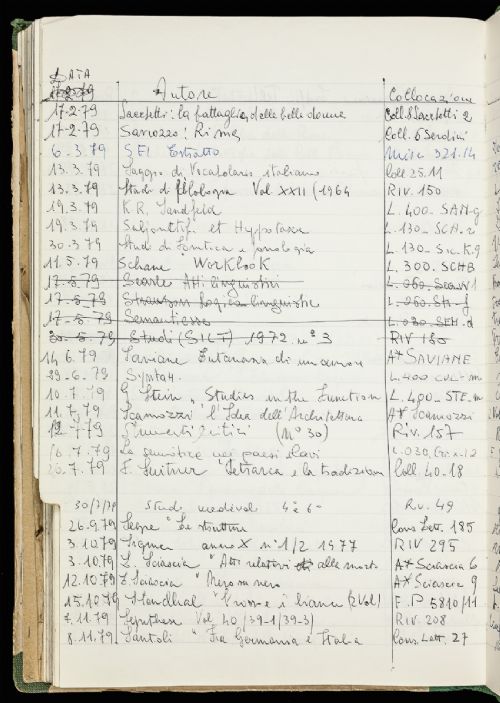 DATA Autore Collocazione
17.2.79 Sacchetti: la battaglia delle belle donne Coll. Sacchetti 2
17-2-79 Sanvozzo: Rime Coll. 6 Serdini
6.3.79 SEI Estratto Misc 321.14
13.3.79 Saggio di Vocabolario italiano Coll 25.11
13.3.79 Studi di filologia Vol XXII (1964 RIV. 150
19.3.79 K.R. L. 400- SAN-g
19.3.79 et Hypotaxe L. 130- SCH-r
30.3.79 Studi di fonetica e fonologia L. 130-
11.5.79 Schane Workbook L. 300. SCHB
17-5-79 Scarte Atti linguistici L. 060.
17-5-79 Strawson Logica linguistic L. 060. Str-f
17-5-79 L. 030. SEM-d
30-5-79 Studi (SILT) 1972 n° 3 RIV 180
14 6.79 Saviane di un amore A* SAVIANE
29-6.79 Syntax. L.400
10.7.79 G Stein, Studies in the Function L. 400- STE-m
11.7.79 Scamozzi "l'Idea dell'Architettura A* Scamozzi
12.7.79 Strumenti critici (N° 30) Riv. 157
16.7.79 La semiotica nei paesi slavi L.030,
26.7.79 F. Suitner "Petrarca e la tradizione Coll. 40.18
30/7/79 Studi medievali 4° e 6° Riv. 49
26.9.79 "Le strutture Cons. Lett. 185
3.10.79 Sigma anno X n° 1/2 1977 RIV 295
3.10.79 L. Sciascia "Atti relativi alla morte A* Sciascia 6
12.10.79 L. Sciascia "Nero su nero A* Sciascia 9
15.10.79 Stendhal "rosso e i bianco (2 Vol) F. P 5810/11
7.11.79 Vol. 40/39-1/39-3) RIV. 208
8.11.79 Santoli "Fra Germania e Italia Cons. Lett. 27